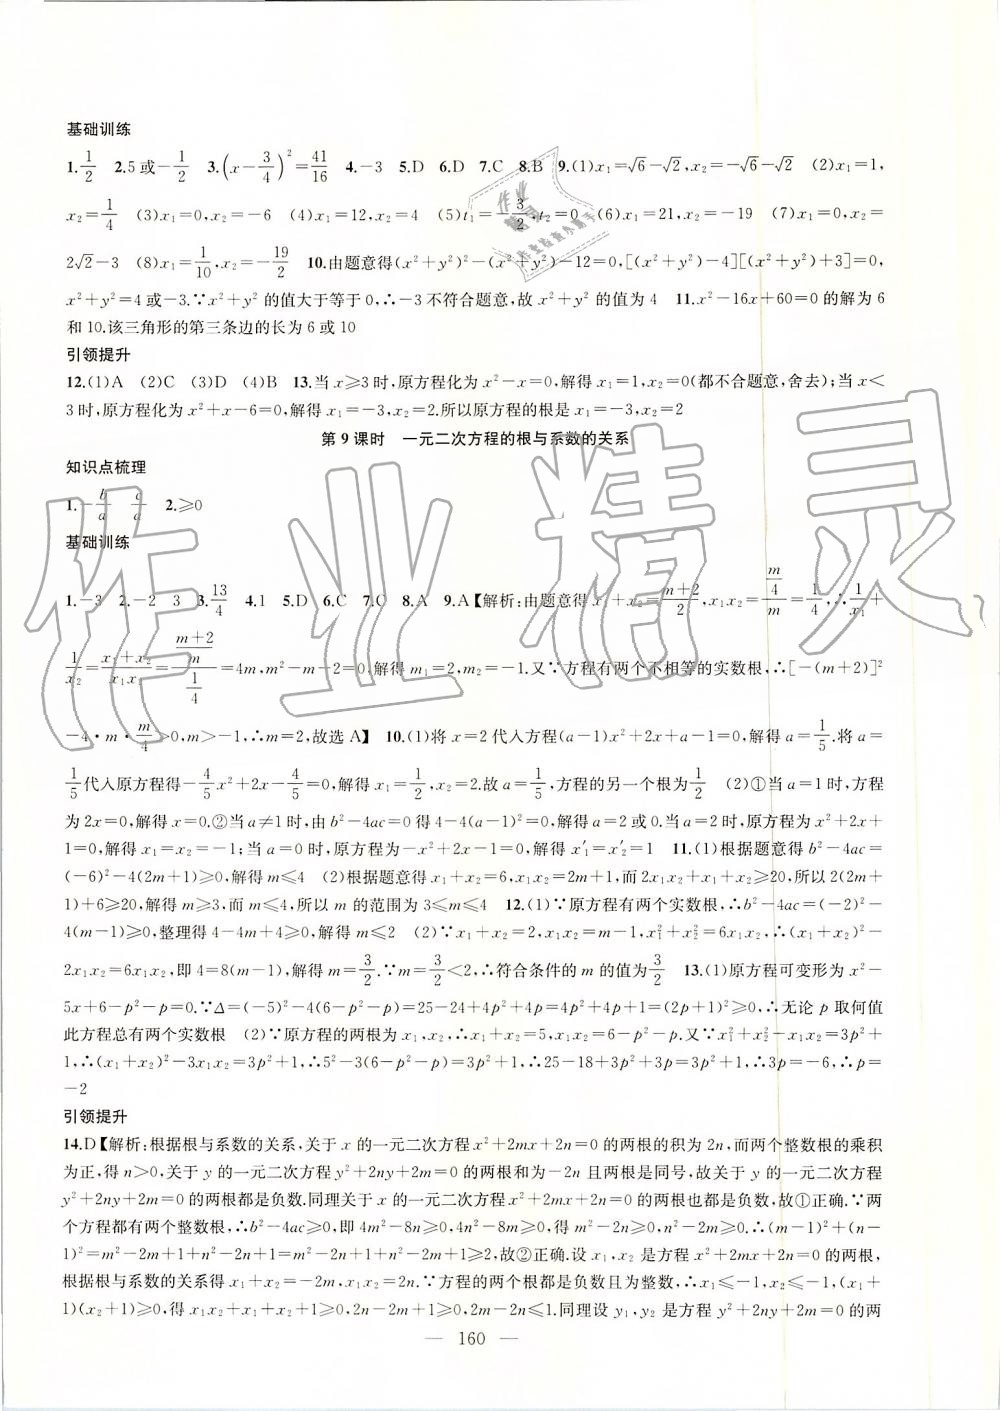 基础训练
1.1/2 2.5或-1/2 3.(x-3/4)²=41/16 4.-3 5.D 6.D 7.C 8.B 9.(1)x₁=√6-√2,x₂=-√6-√2 (2)x₁=1,
x₂=1/4 (3)x₁=0,x₂=-6 (4)x₁=12,x₂=4 (5)t₁=-3/2,t₂=0 (6)x₁=21,x₂=-19 (7)x₁=0,x₂=
2√2-3 (8)x₁=1/10,x₂=-19/2 10.由题意得(x²+y²)²-(x²+y²)-12=0,[(x²+y²)-4][(x²+y²)+3]=0,
x²+y²=4或-3.∵x²+y²的值大于等于0,∴-3不符合题意,故x²+y²的值为4 11.x²-16x+60=0的解为6
和10.该三角形的第三条边的长为6或10
引领提升
12.(1)A (2)C (3)D (4)B 13.当x≥3时,原方程化为x²-x=0,解得x₁=1,x₂=0(都不合题意,舍去);当x<
3时,原方程化为x²+x-6=0,解得x₁=-3,x₂=2.所以原方程的根是x₁=-3,x₂=2
第9课时 一元二次方程的根与系数的关系
知识点梳理
1.-b/a c/a 2.≥0
基础训练
1.-3 2.-2 3 3.13/4 4.1 5.D 6.C 7.C 8.A 9.A【解析:由题意得x₁+x₂=(m+2)/2,x₁x₂=(m/4)/m=1/4,∴1/x₁+
1/x₂=(x₁+x₂)/(x₁x)=((m+2)/m)/(1/4)=4m,m²-m-2=0,解得m₁=2,m₂=-1.又∵方程有两个不相等的实数根,∴[-(m+2)]²
-4·m·m/4>0,m>-1,∴m=2,故选A】 10.(1)将x=2代入方程(a-1)x²+2x+a-1=0,解得a=1/5.将a=
1/5代入原方程得-4/5x²+2x-4/5=0,解得x₁=1/2,x₂=2.故a=1/5,方程的另一个根为1/2 (2)①当a=1时,方程
为2x=0,解得x=0.②当a≠1时,由b²-4ac=0得4-4(a-1)²=0,解得a=2或0.当a=2时,原方程为x²+2x+
1=0,解得x₁=x₂=-1;当a=0时,原方程为-x²+2x-1=0,解得x′₁=x′₂=1 11.(1)根据题意得b²-4ac=
(-6)²-4(2m+1)≥0,解得m≤4 (2)根据题意得x₁+x₂=6,x₁x₂=2m+1,而2x₁x₂+x₁+x₂≥20,所以2(2m+
1)+6≥20,解得m≥3,而m≤4,所以m的范围为3≤m≤4 12.(1)∵原方程有两个实数根,∴b²-4ac=(-2)²-
4(m-1)≥0,整理得4-4m+4≥0,解得m≤2 (2)∵x₁+x₂=2,x₁x₂=m-1,x₁²+x₂²=6x₁x₂,∴(x₁+x₂)²-
2x₁x₂=6x₁x₂,即4=8(m-1),解得m=3/2.∵m=3/2<2,∴符合条件的m的值为3/2 13.(1)原方程可变形为x²-
5x+6-p²-p=0.∵Δ=(-5)²-4(6-p²-p)=25-24+4p²+4p=4p²+4p+1=(2p+1)²≥0,∴无论p取何值
此方程总有两个实数根 (2)∵原方程的两根为x₁,x₂,∴x₁+x₂=5,x₁x₂=6-p²-p.又∵x₁²+x₂²-x₁x₂=3p²+
1,∴(x₁+x₂)²-3x₁x₂=3p²+1,∴5²-3(6-p²-p)=3p²+1,∴25-18+3p²+3p=3p²+1,∴3p=-6,∴p=
-2
引领提升
14.D【解析:根据根与系数的关系,关于x的一元二次方程x²+2mx+2n=0的两根的积为2n,而两个整数根的乘积
为正,得n>0,关于y的一元二次方程y²+2ny+2m=0的两根和为-2n且两根是同号,故关于y的一元二次方程
y²+2ny+2m=0的两根都是负数.同理关于x的一元二次方程x²+2mx+2n=0的两根也都是负数,故①正确.∵两
个方程都有两个整数根,∴b²-4ac≥0,即4m²-8n≥0,4n²-8m≥0,得m²-2n≥0,n²-2m≥0.∴(m-1)²+(n-
1)²=m²-2m+1+n²-2n+1=m²-2n+1+n²-2m+1≥2,故②正确.设x₁,x₂是方程x²+2mx+2n=0的两根,
根据根与系数的关系得x₁+x₂=-2m,x₁x₂=2n.∵方程的两个根都是负数且为整数,∴x₁≤-1,x₂≤-1,(x₁+
1)(x₂+1)≥0,得x₁x₂+x₁+x₂+1≥0,2n-2m+1≥0,2m-2n≤1.同理设y₁,y₂是方程y²+2ny+2m=0的两
— 160 —
作业精灵